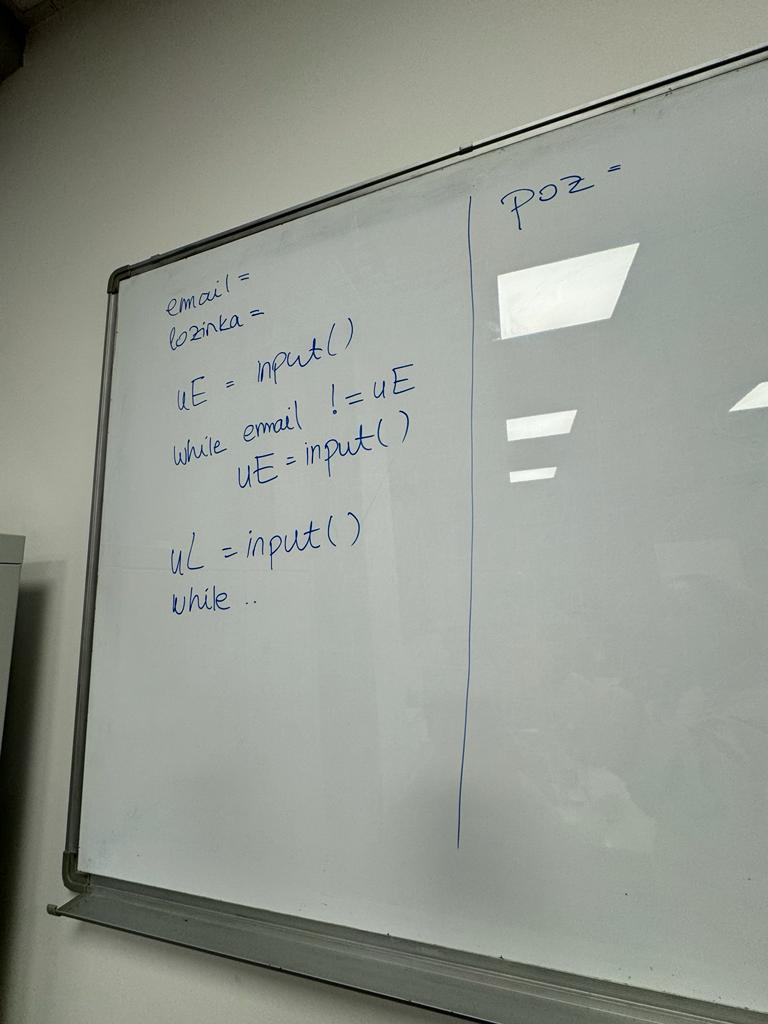 email =
lozinka =
uE = input()
while email != uE
uE = input()
uL = input()
while ..
poz =